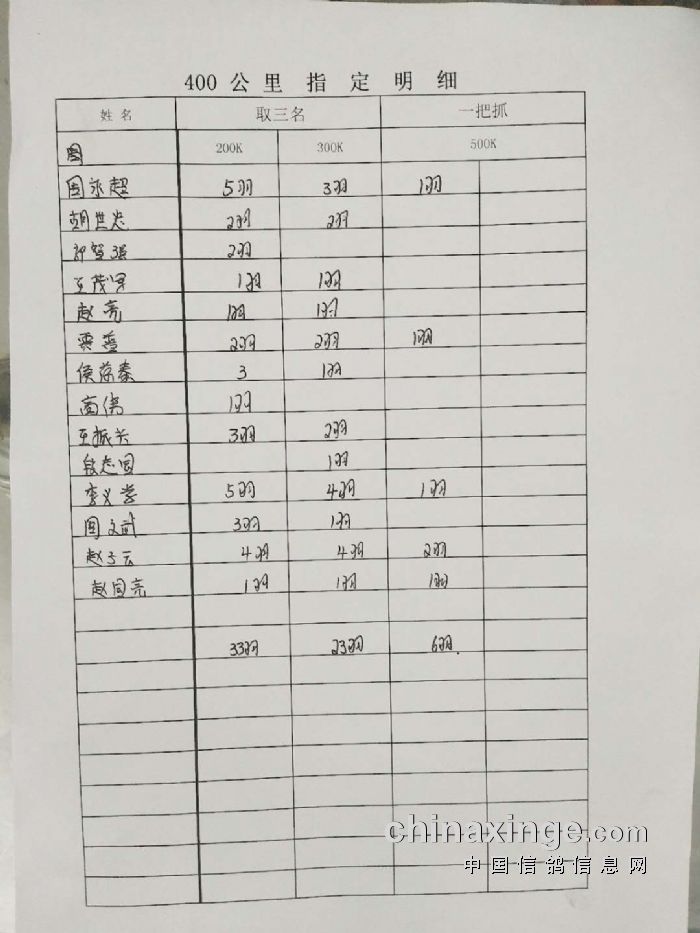 400 公里 指 定 明 细
姓 名 取三名 一把抓
周 200K 300K 500K
周永超 5羽 3羽 1羽
胡世忠 2羽 2羽
2羽
王茂军 1羽 1羽
赵亮 1羽 1羽
栗 2羽 2羽 1羽
侯存秦 3 1羽
高伟 1羽
王振兴 3羽 2羽
段志国 1羽
李义学 5羽 4羽 1羽
周文武 3羽 1羽
赵子云 4羽 4羽 2羽
赵国亮 1羽 1羽 1羽
33羽 23羽 6羽.
chinaxinge.com
中国信鸽信息网